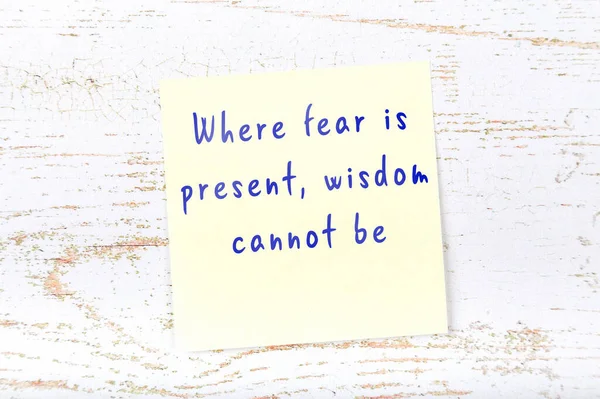 Where fear is
present, wisdom
cannot be